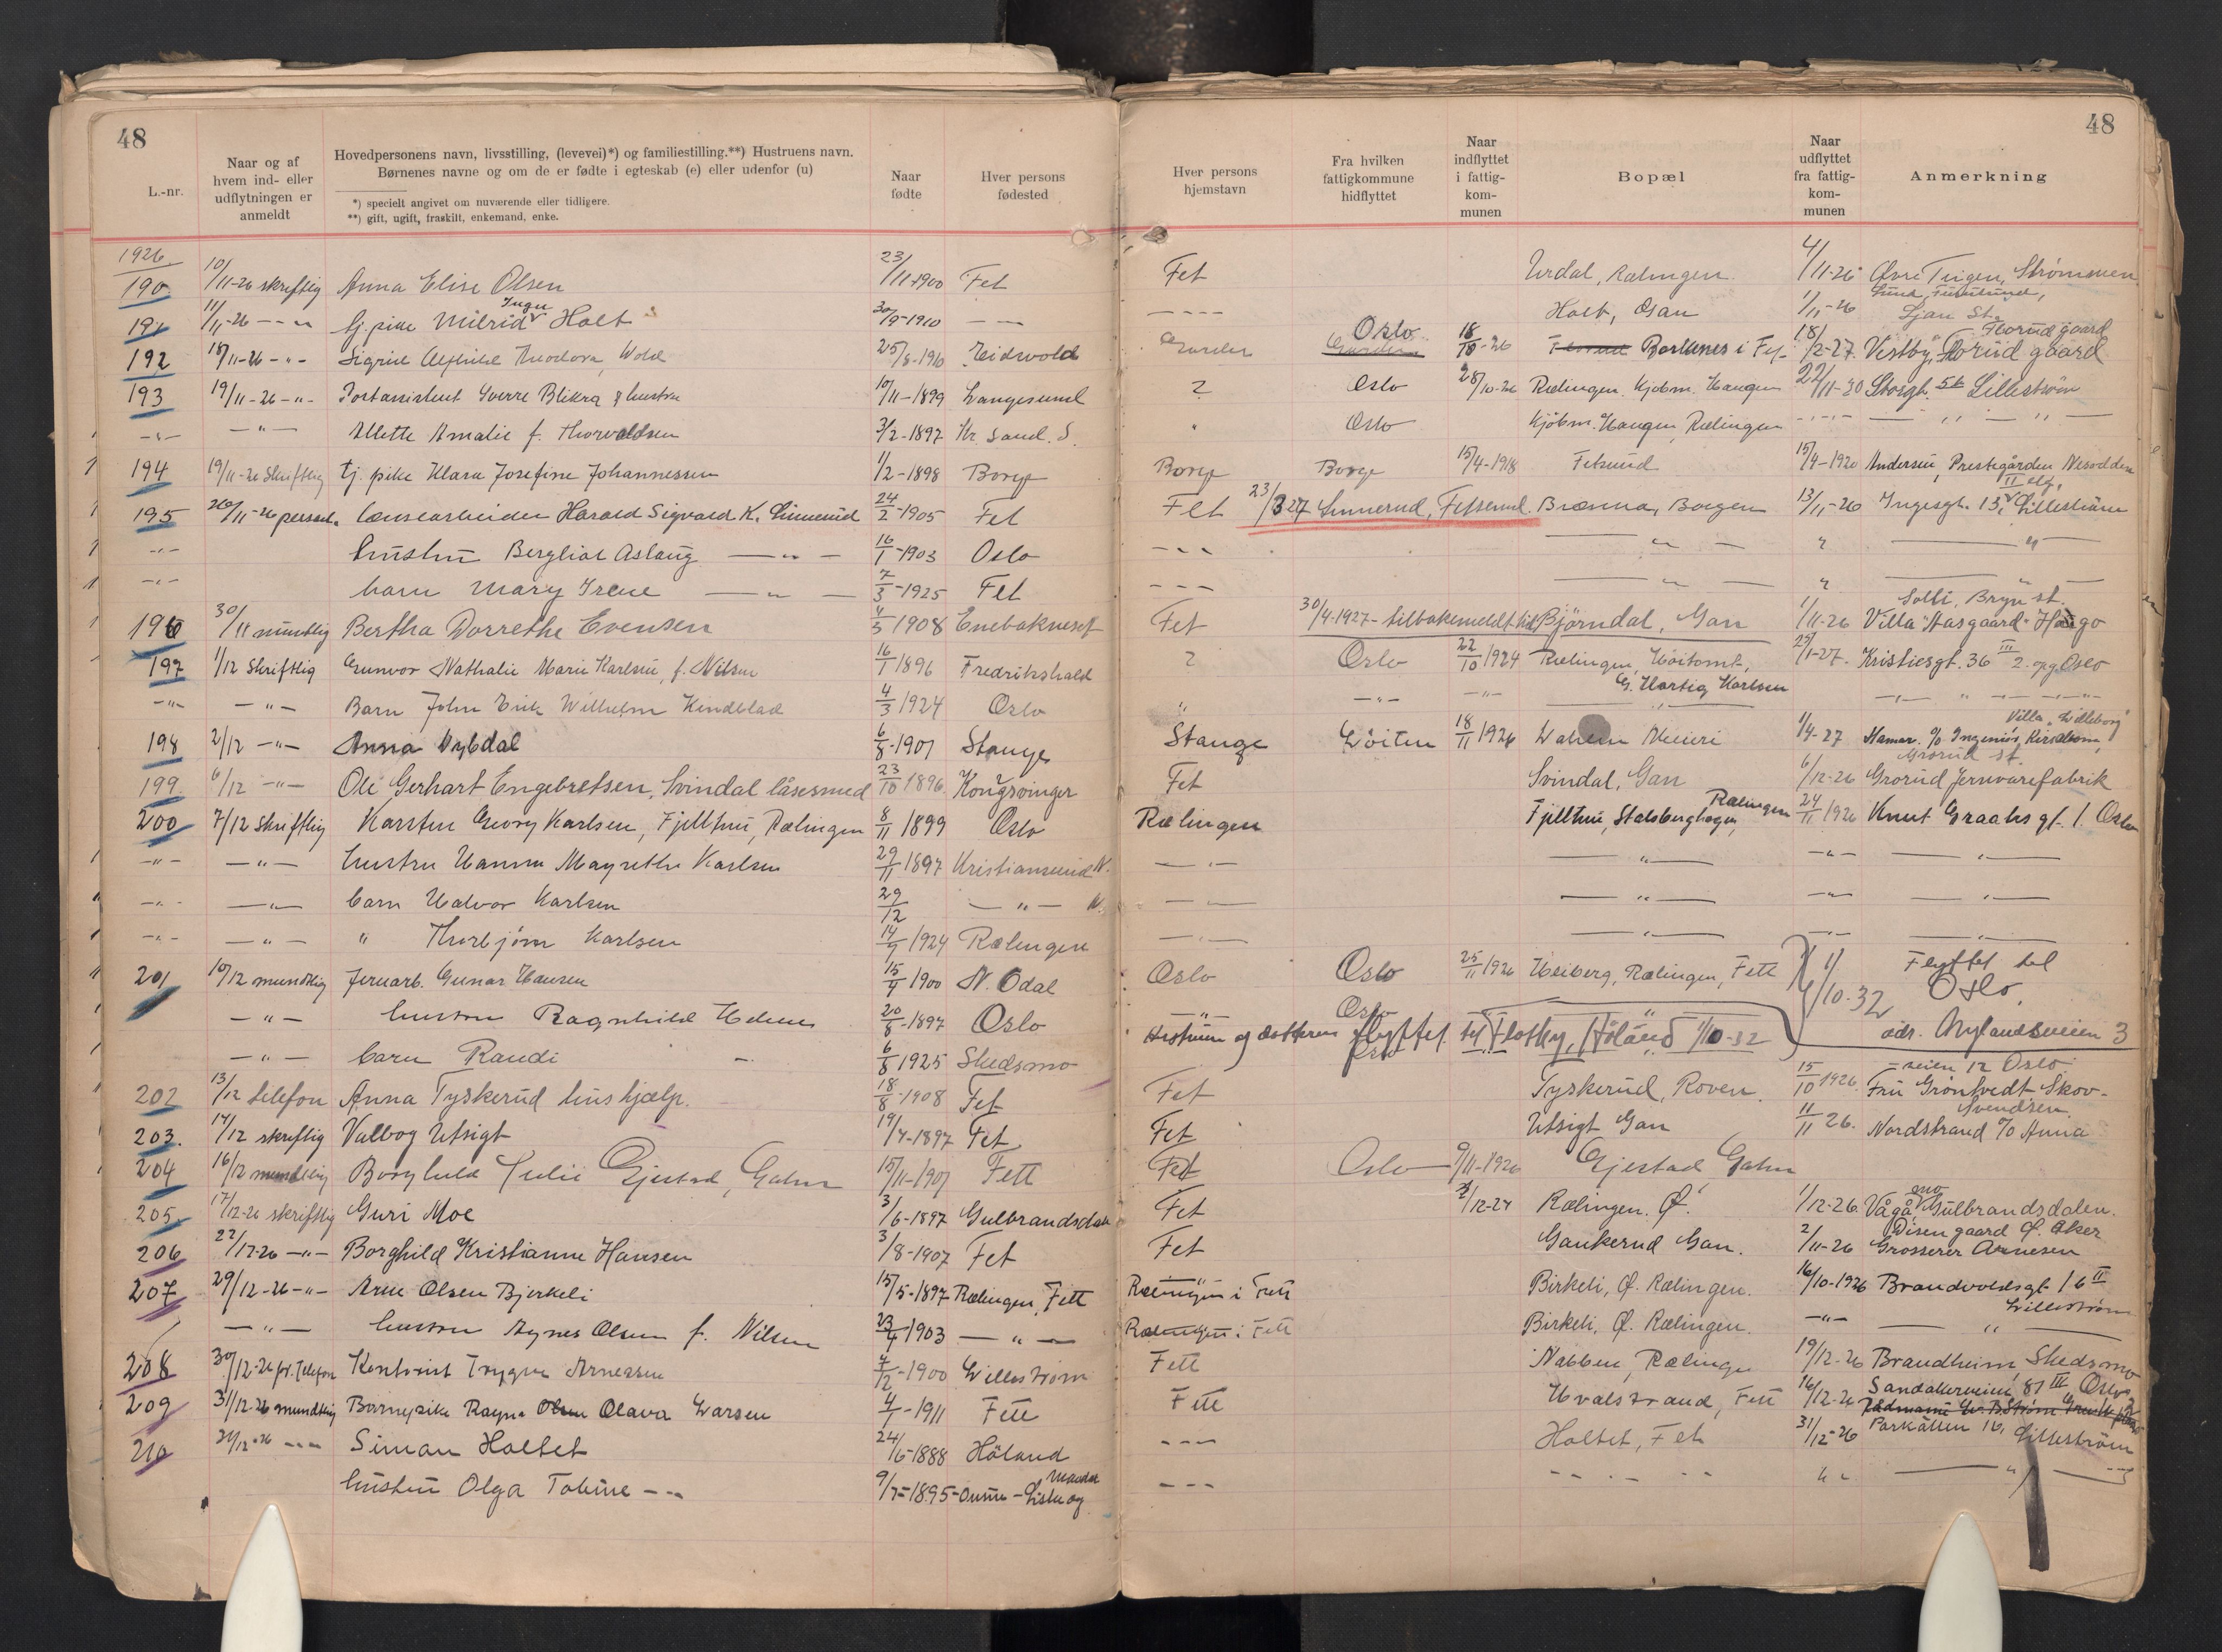 48
L.-nr.
Naar og af hvem ind- eller udflytningen er anmeldt
Hovedpersonens navn, livsstilling, (levevei)*) og familiestilling.**) Hustruens navn.
Børnenes navne og om de er fødte i egteskab (e) eller udenfor (u)
*) specielt angivet om nuværende eller tidligere.
**) gift, ugift, fraskilt, enkemand, enke.
Naar fødte
Hver persons fødested
Hver persons hjemstavn
Fra hvilken fattigkommune hidflyttet
Naar indflyttet i fattig-kom-munen
Bopæl
Naar udflyttet fra fattig-kom-munen
Anmerkning
48
1926
190 10/11-26 skriftlig Anna Elise Olsen 23/11 1900 Fet Fet Urdal, Rælingen 4/11-26 Øvre Teigen, Strømmen
191 11/11-26 -"- tj. pike Milrid Inga Holt 30/9-1910 -"- -"- Holt, Gan 1/11-26 Ljan St.
192 18/11-26 -"- Sigrid Theodora Wold 25/8-1910 Eidsvold Garder Oslo 18/10-26 Borkenes i Fet 18/2-27 Vestby, Florud gaard
193 19/11-26 -"- Postassistent Sverre Blikra & hustru 10/11-1899 Langesund ? Oslo 28/10-26 Rælingen Kjøbm. Haugen 22/11-30 Storgt. 5b Lillestrøm
-"- -"- Allette Amalie f. Thorvaldsen 3/2-1897 Kr. sand. S. " Oslo Kjøbm. Haugen, Rælingen -"- -"-
194 19/11-26 Skriftlig tj. pike Klara Josefine Johannessen 1/2-1898 Borge Borge Borge 15/4-1918 Fetsund 15/4-1920 Andersen, Prestegården Nesodden
195 20/11-26 personl. lensearbeider Harald Sigvard K. Linnerud 24/2-1905 Fet Fet 23/3 27 Linnerud, Fetsund. Brænna, Borgen 13/11-26 Ingesgt. 13, II etg. Lillestrøm
-"- hustru Bergliot Aslaug -"- 16/1-1903 Oslo -"- -"- " -"-
-"- barn Mary Irene -"- 7/3-1925 Fet -"- -"- " -"-
196 30/11 mundtlig Bertha Dorrethe Evensen 4/5 1908 Enebakneset Fet 30/4-1927 - tilbakemeldt til Bjørndal, Gan 1/11-26 Villa "Aasgaard" Solli, Bryn st.
197 1/12 Skriftlig Gunvor Nathalie Marie Karlsen, f. Nilsen 16/1 1896 Fredrikshald ? Oslo 22/10 1924 Rælingen, Høitomt, 25/1-27. Kristiesgt. 36 III 2. opg Oslo
G. Hartig Karlsen
-"- -"- Barn John Erik Wilhelm Kindblad 4/3 1924 Oslo " -"- -"- -"- -"-
198 2/12 -"- Anna Nybdal 6/8-1901 Stange Stange Løiten 18/11 1926 Meieri 1/4-27 Hamar. c/o Ingeniør Villa "Lilleborg"
199 6/12 -"- Ole Gerhart Engebretsen, Svindal låsesmed 23/10 1896 Kongsvinger Fet Svindal, Gan 6/12-26 Grorud Jernvarefabrik Grorud st.
200 7/12 Skriftlig Karsten Georg Karlsen, Fjelltun, Rælingen 8/11 1899 Oslo Rælingen Fjelltun, Stalsberghagen, Rælingen 24/11 1926 Knut Graahs gt. 1. Oslo
-"- -"- hustru Hanna Magrethe Karlsen 29/11 1897 Kristiansund N. -"- -"- -"- -"-
-"- -"- barn Halvor Karlsen 29/12 -"- N. -"- -"- -"- -"-
-"- -"- " Thorbjørn Karlsen 14/9 1924 Rælingen -"- -"- -"- -"-
201 10/12 mundtlig Jernarb. Gunnar Hansen 15/4 1900 N. Odal Oslo Oslo 25/11 1926 Heiberg, Rælingen, Fett 1/10-32 Flyttet til Oslo,
-"- hustru Ragnhild Helene 20/8-1897 Oslo -"- Oslo " adr. Nylandsveien 3
Hustruen og datteren flyttet til Flotby, Høland 1/10-32
-"- barn Randi 6/8 1925 Skedsmo
202 13/12 telefon Anna Tyskerud hushjælp. 18/8-1908 Fet Fet Tyskerud, Roven. 15/10 1926. Fru Grøntvedt Skov-veien 12 Oslo
203. 14/12 skriftlig Valbog Utsigt 19/4-1897 Fet Fet Utsigt Gan 11/11 26. Nordstrand c/o Anna Svendsen.
204 16/12 mundtlig Borghild Julie Gjestad, Gahn 15/11-1907 Fett Fet Oslo 9/11-1926 Gjestad Gahn
205. 17/12-26 skriftlig Guri Moe 3/6-1897 Gulbrandsdalen Fet 2/12-24 Rælingen. Ø. 1/12-26. Vågåmo Gulbrandsdalen.
206 22/12-26 -"- Borghild Kristianne Hansen 3/8-1907 Fet Fet Gankerud Gan. 2/11-26 Grosserer Arnesen Disen gaard Ø. Aker
207 29/12-26 -"- Arne Olsen Bjerkeli 15/5-1897 Rælingen, Fett Rælingen i Fett Birkeli, Ø. Rælingen. 16/10-1926 Brandvoldsgt. 16 II Lillestrøm
-"- hustru Agnes Olsen f. Nilsen 23/4 1903 -"- Rælingen i Fett Birkeli, Ø. Rælingen. -"- -"-
208 30/12-26 pr. Telefon Kontorist Trygve Arnesen 7/2-1900 Lillestrøm Fett Nabben, Rælingen 19/12-26 Brandheim, Skedsmo
209 31/12-26 mundtlig Barnepike Ragna Olava Larsen 4/1-1911 Fett Fett Hvalstrand, Fett 16/12-26 Sandakerveien 81 IV Oslo
210 31/12-26 -"- Simon Holtet 24/5-1888 Høland -"- Holtet, Fet 31/12-26 Parkallen 10, Lillestrøm
hustru Olga Tobine -"- 9/7-1895 Mandal -"- -"- " -"-